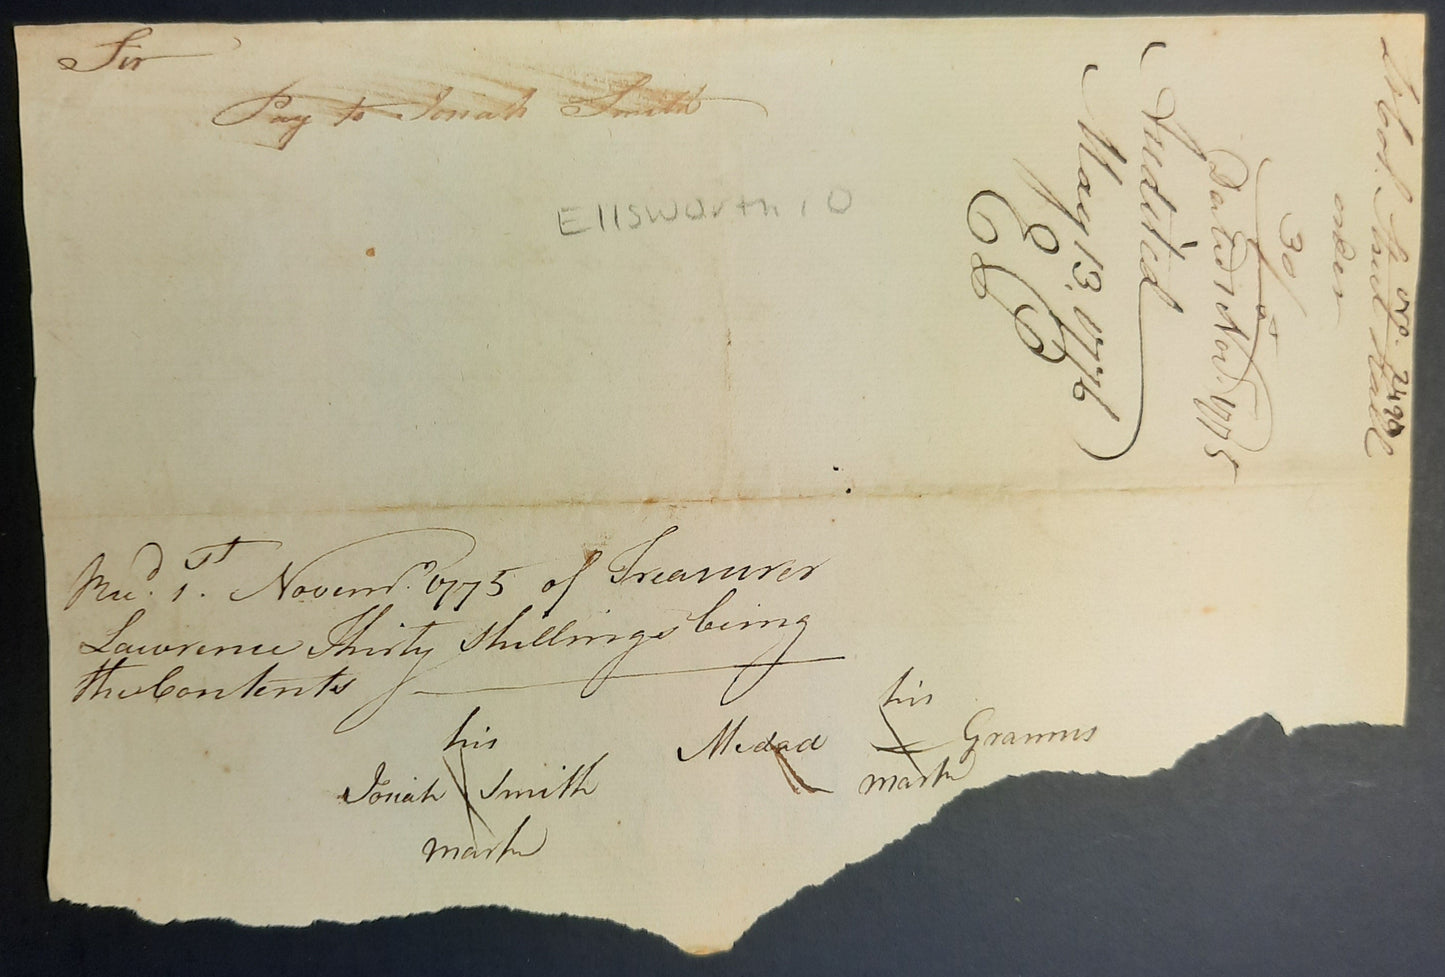 Sir
Pay to Jonah Smith
Ellsworth, O
Recd. 1st. Novemr. 1775 of Treasurer
Lawrence Thirty Shillings being
the Contents
his
Jonah Smith
mark
his
Medad Grannis
mark
No. 2490
order
30/
Dated 1 Novr. 1775
Audited
May 13. 1776